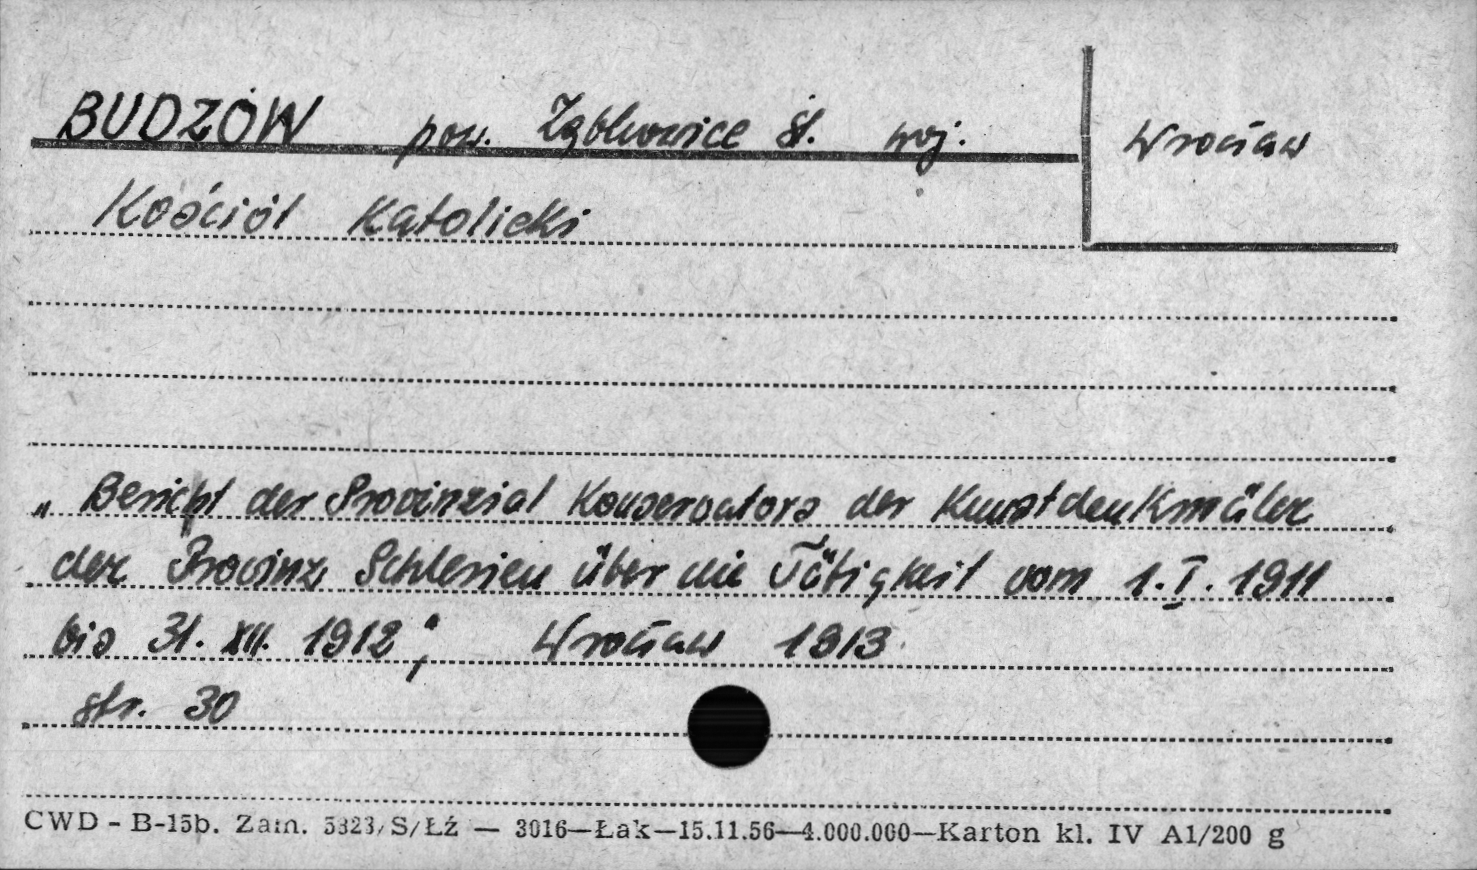 BUDZÓW pow. Ząbkowice Śl. woj. Wrocław
Kościół Katolicki
„Bericht der Provinzial Konservators der Kunstdenkmäler
der Provinz Schlesien über die Tätigkeit vom 1.I.1911
bis 31.XII.1912"; Wrocław 1913
str. 30
CWD - B-15b. Zam. 5323/S/Łź — 3016—Łak—15.11.56—4.000.000—Karton kl. IV A1/200 g